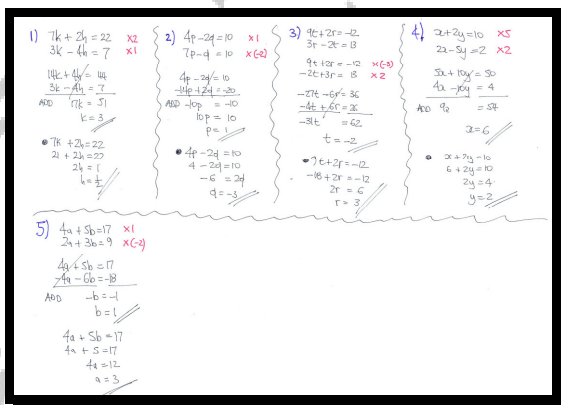 1) 7k + 2h = 22 x2
3k - 4h = 7 x1
14k + 4h = 44
3k - 4h = 7
ADD 17k = 51
k = 3
• 7k + 2h = 22
21 + 2h = 22
2h = 1
h = 1/2
2) 4p - 2q = 10 x1
7p - q = 10 x(-2)
4p - 2q = 10
-14p + 2q = -20
ADD -10p = -10
10p = 10
p = 1
• 4p - 2q = 10
4 - 2q = 10
-6 = 2q
q = -3
3) 9t + 2r = -12
3r - 2t = 13
9t + 2r = -12 x(-3)
-2t + 3r = 13 x2
-27t - 6r = 36
-4t + 6r = 26
-31t = 62
t = -2
• 9t + 2r = -12
-18 + 2r = -12
2r = 6
r = 3
4) x + 2y = 10 x5
2x - 5y = 2 x2
5x + 10y = 50
4x - 10y = 4
ADD 9x = 54
x = 6
x + 2y = 10
6 + 2y = 10
2y = 4
y = 2
5) 4a + 5b = 17 x1
2a + 3b = 9 x(-2)
4a + 5b = 17
-4a - 6b = -18
ADD -b = -1
b = 1
4a + 5b = 17
4a + 5 = 17
4a = 12
a = 3